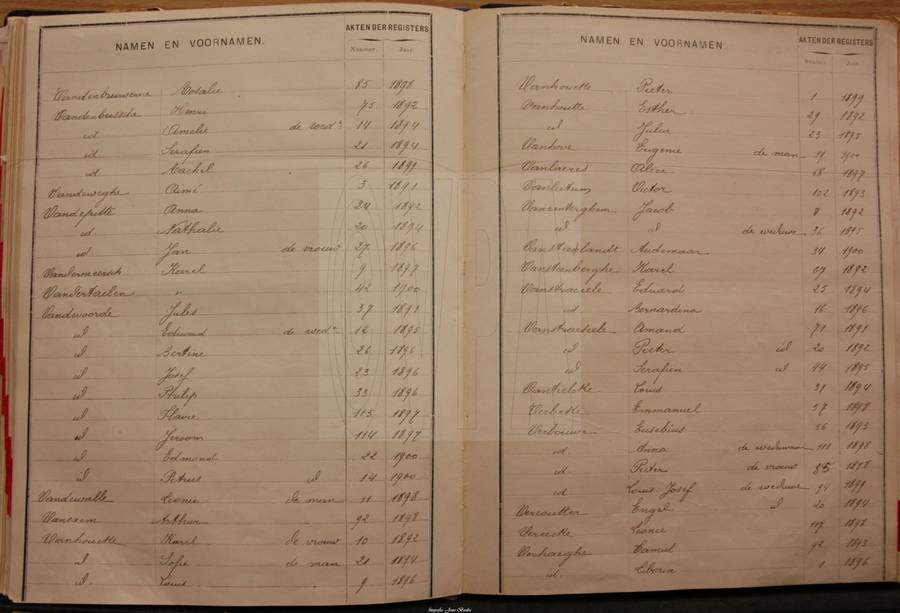 NAMEN EN VOORNAMEN. AKTEN DER REGISTERS
Nummer. Jaar.
Vandenbrouwane Rosalie 85 1898
Vandenbussche Henri 75 1892
id Amelie de wedᵉ 14 1894
id. Serafien 21 1894
id Rachel 26 1899
Vandeweghe Aimé 3 1891
Vandeputte Anna 24 1892
id. Nathalie 20 1894
id. Jan de vrouw 27 1896
Vandermeersch Karel 9 1897
Vandertaelen " 42 1900
Vandevoorde Jules 37 1891
id Edward de wedᵉ 12 1895
id Bertine 26 1896
id Josef 23 1896
id Philip 33 1896
id Flavie 115 1897
id Jeroom 114 1897
id Edmond 22 1900
id Petrus id 14 1900
Vandewalle Leonie de man 11 1898
Vanexem Arthur 92 1898
Vanhouette Karel de vrouw 10 1892
id Sofie de man 21 1894
id Louis 9 1896
NAMEN EN VOORNAMEN. AKTEN DER REGISTERS
Nummer Jaar
Vanhouette Pieter 1 1899
Vanhoutte Esther 29 1892
id Julia 23 1895
Vanhove Eugenie de man 19 1900
Vanlaeres Alice 68 1897
Vanlertum Victor 102 1893
Vanrenterghem Jacob 8 1892
id id de weduwe 36 1895
Vansteenlandt Audemaar 34 1900
Vansteenberghe Karel 1892
Vanstraceele Eduard 25 1894
id Bernardina 16 1896
Vanstraeseele Amand 71 1891
id Pieter id 20 1892
id Serafien id 94 1895
Vantielcke Louis 31 1894
Verbeke Emmanuel 57 1898
Verbouwe Eusebius 56 1893
id Anna de weduwaar 111 1898
id Pieter de vrouw 85 1898
id Louis Josef de weduwe 94 1899
Vercoutter Engel id 20 1894
Vereecke Leonie 117 1898
Verhaeghe Camiel 92 1893
id. Liboria 1 1896